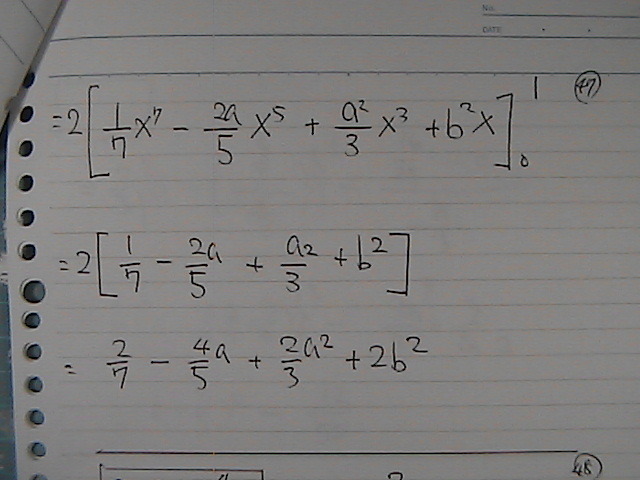 No.
DATE
= 2 [ 1/7 x⁷ − 2a/5 x⁵ + a²/3 x³ + b²x ]₀¹ ㊼
= 2 [ 1/7 − 2a/5 + a2/3 + b² ]
= 2/7 − 4/5 a + 2/3 a² + 2b²
㊽